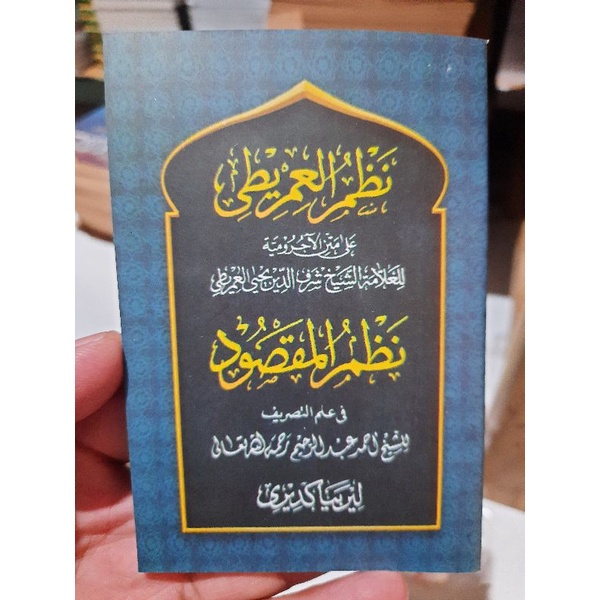 نَظْمُ الْعِمْرِيطِي
عَلَى مَتْنِ الْآجُرُومِيَّة
لِلْعَلَّامَةِ الشَّيْخ شَرَفِ الدِّيْن يَحْيَى الْعِمْرِيطِي
نَظْمُ الْمَقْصُود
فى علم التصريف
للشيخ احمد عبد الرحيم رحمه الله تعالى
ليربيا كديرى